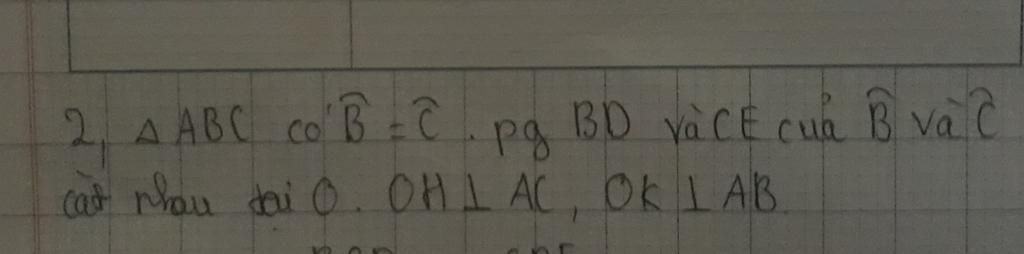 2, △ ABC có B̂ = Ĉ. pg BD và CE của B̂ và Ĉ
cắt nhau tại O. OH ⊥ AC, OK ⊥ AB